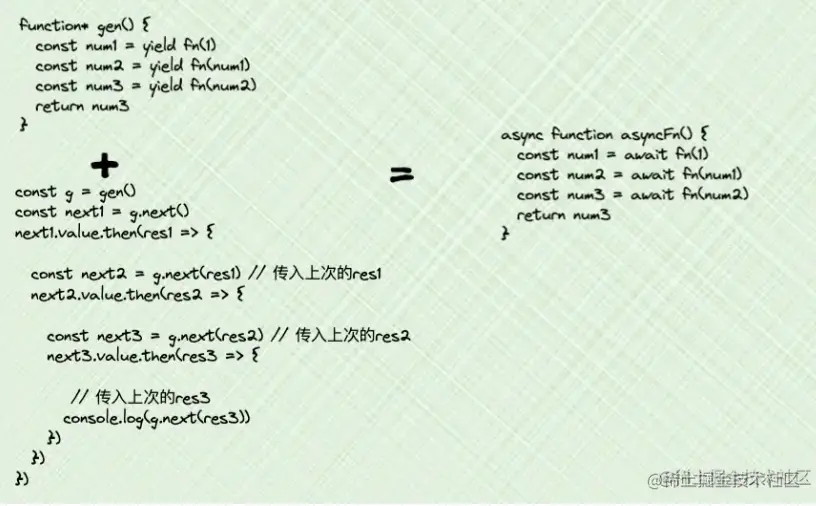 function* gen() {
const num1 = yield fn(1)
const num2 = yield fn(num1)
const num3 = yield fn(num2)
return num3
}
+
const g = gen()
const next1 = g.next()
next1.value.then(res1 => {
const next2 = g.next(res1) // 传入上次的res1
next2.value.then(res2 => {
const next3 = g.next(res2) // 传入上次的res2
next3.value.then(res3 => {
// 传入上次的res3
console.log(g.next(res3))
})
})
})
=
async function asyncFn() {
const num1 = await fn(1)
const num2 = await fn(num1)
const num3 = await fn(num2)
return num3
}
@稀土掘金技术社区